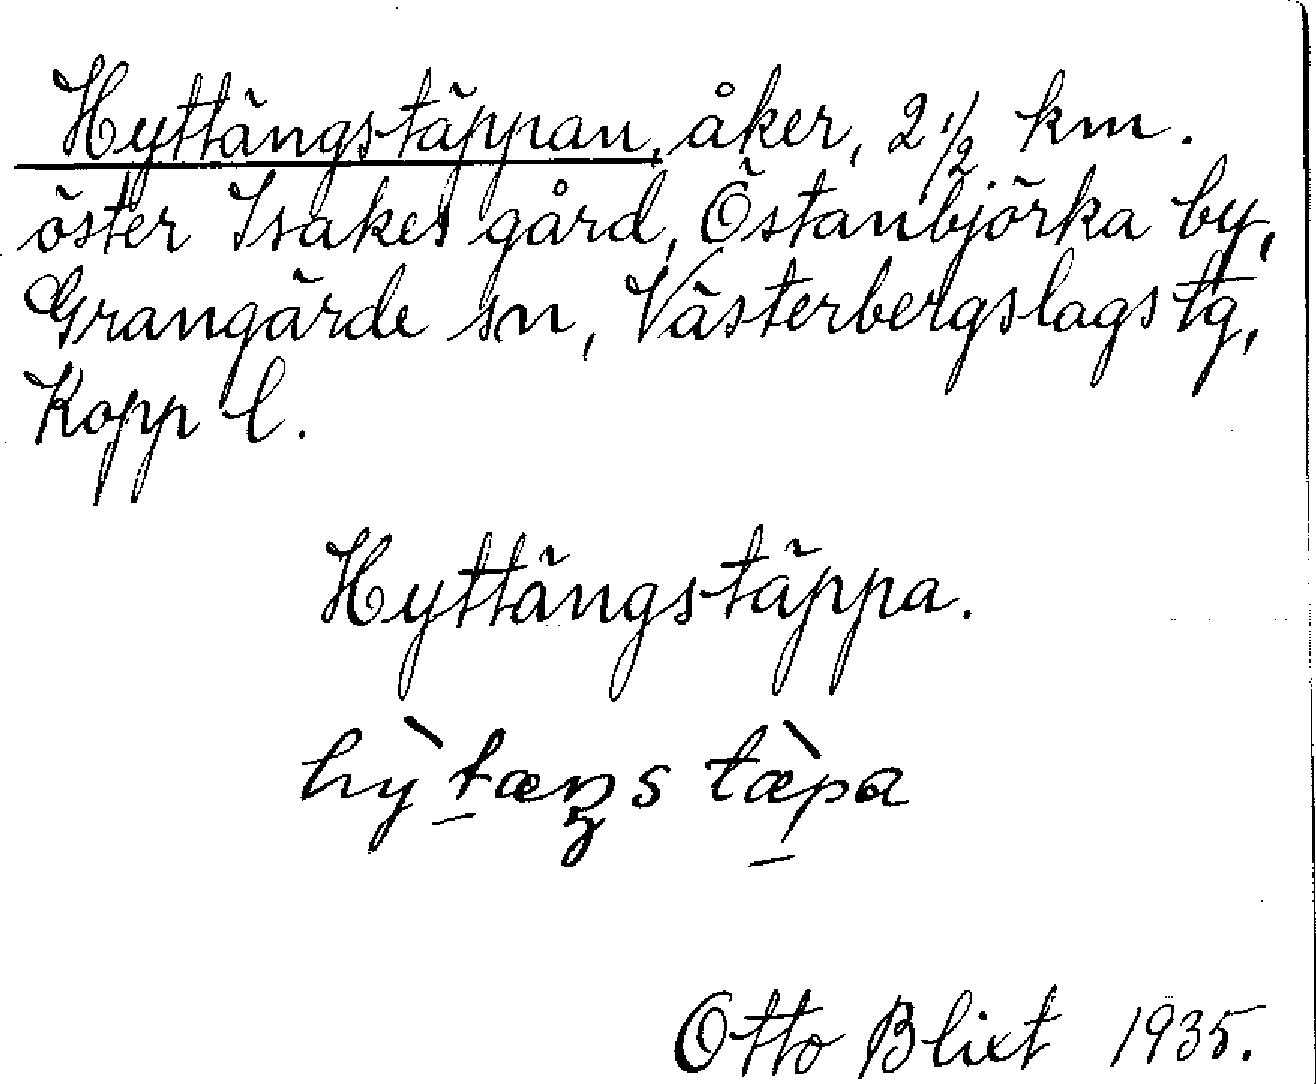 Hyttängstäppan, åker, 2 1/2 km.
öster Isakes gård, Östanbjörka by,
Grangärde sn, Västerbergslags tg,
Kopp l.
Hyttängstäppa.
hỳtæŋs tæ̀pa
Otto Blixt 1935.